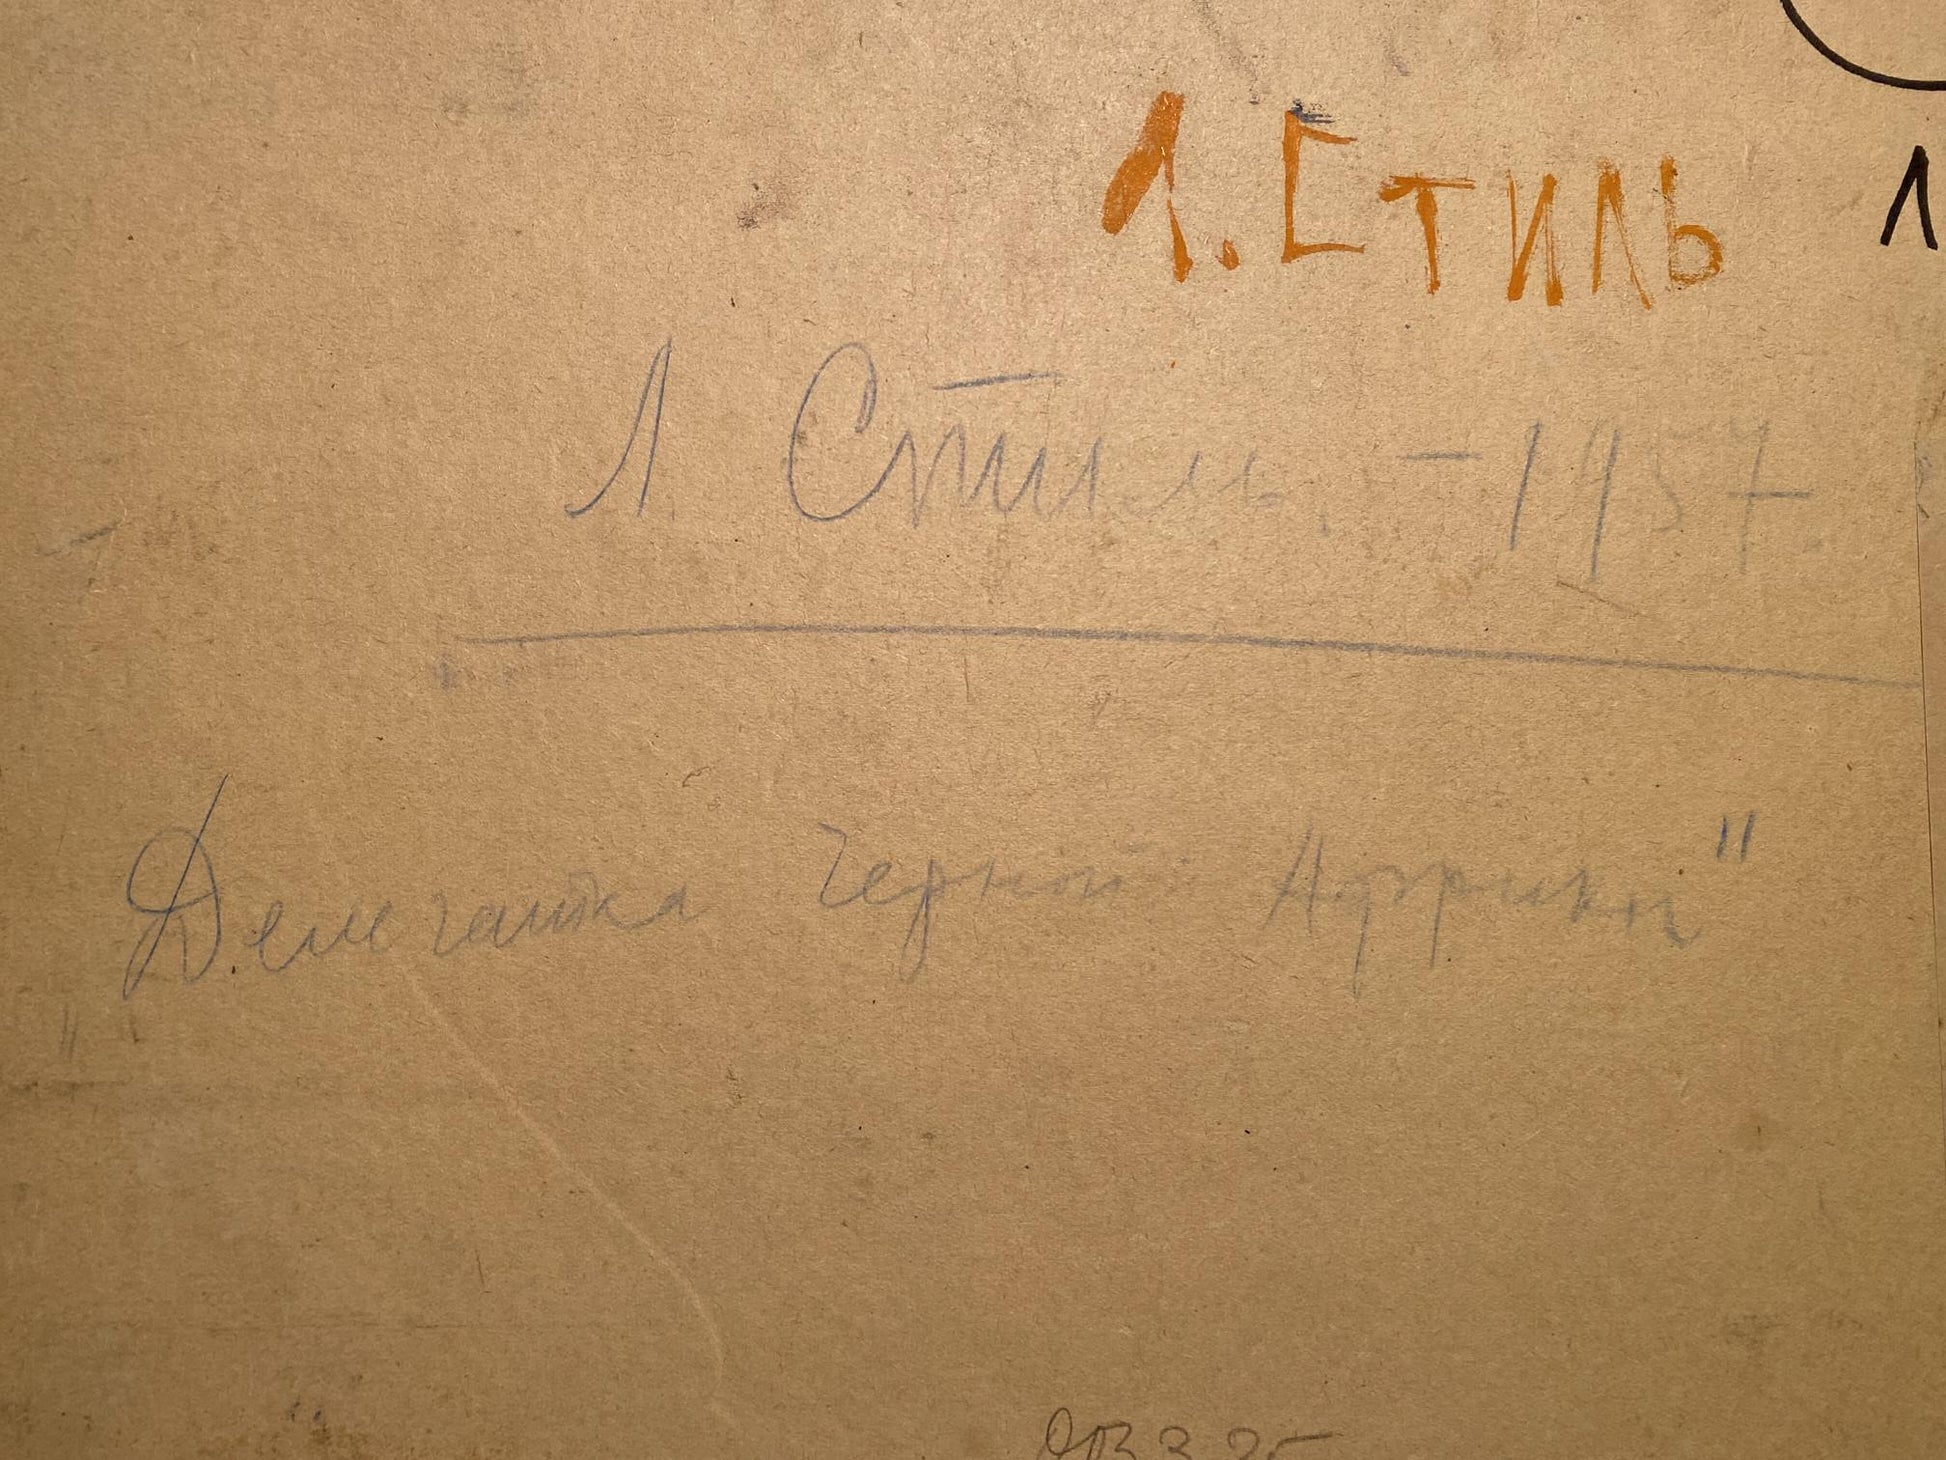 Л. Стиль
Л. Стиль. - 1957.
"Делегатка Черной Африки"